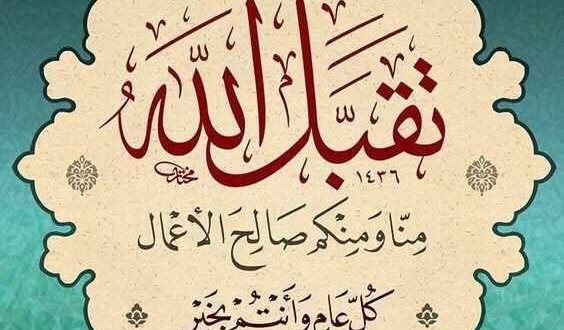 تَقَبَّلَ اللهُ
١٤٣٦
مِنَّا وَمِنْكُم صَالِحَ الأَعْمَال
كُلُّ عَامٍ وَأَنْتُمْ بِخَيْرٍ